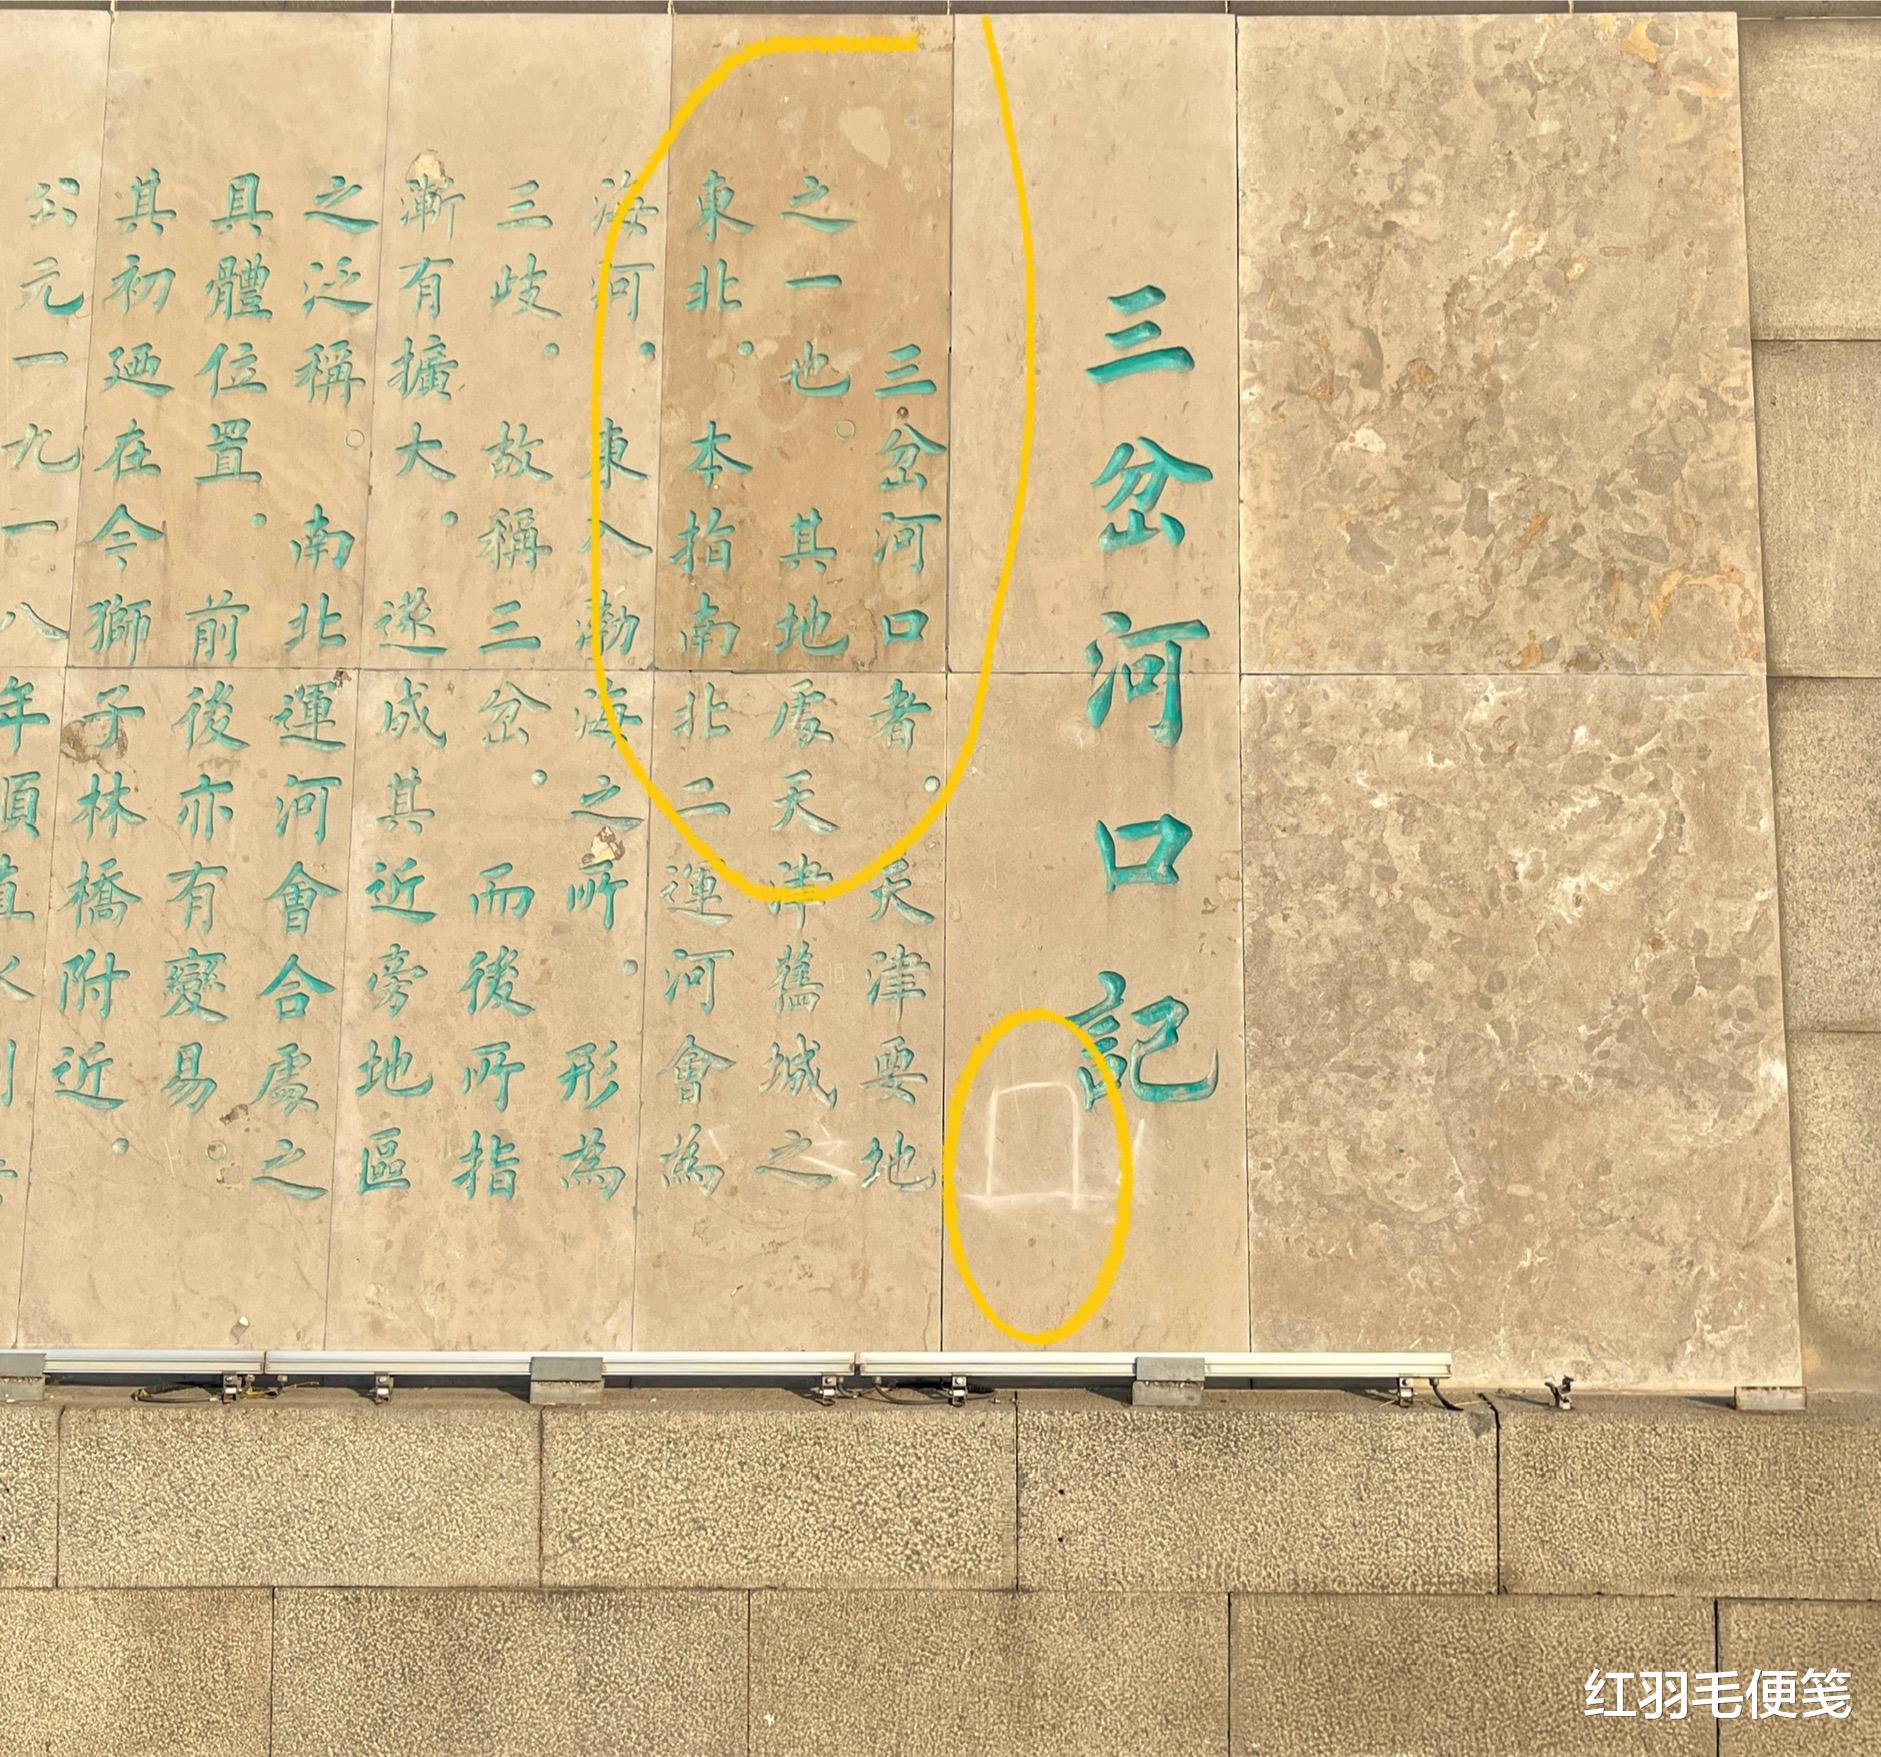 三岔河口記
三岔河口者。天津要地
之一也。其地處天津舊城之
東北。本指南北二運河會為
海河。東入渤海之所。形為
三歧。故稱三岔。而後所指
漸有擴大。遂成其近旁地區
之泛稱。南北運河會合處之
具體位置。前後亦有變易。
其初廼在今獅子林橋附近。
公元一九一八年順直水利
红羽毛便笺